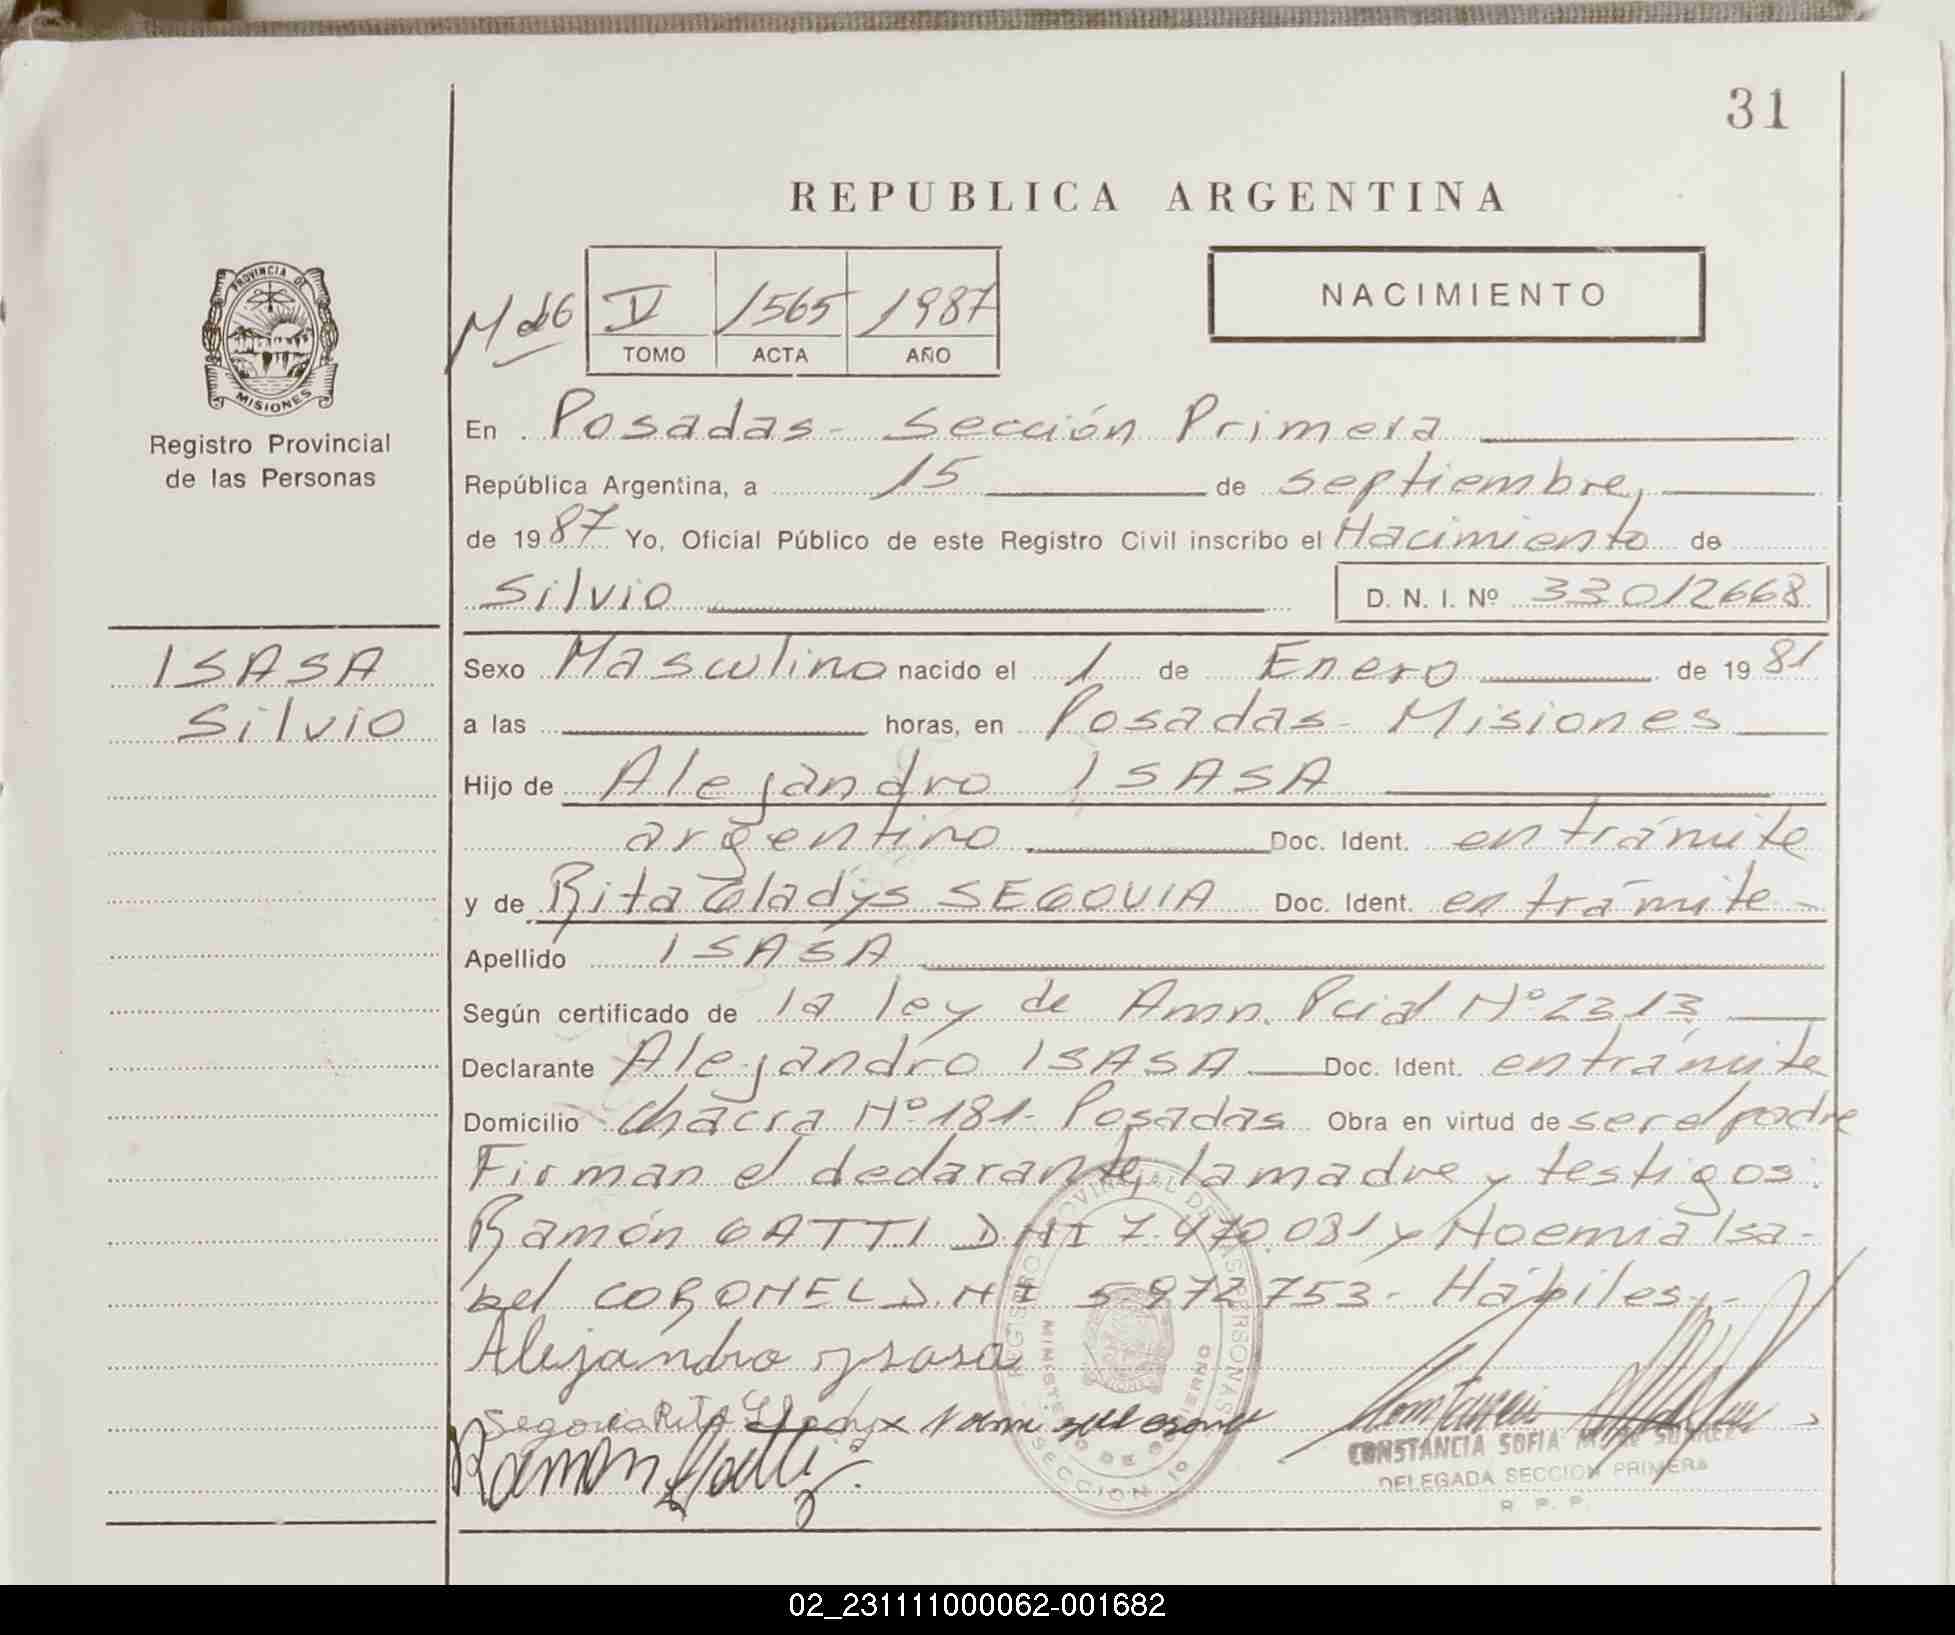 31
REPUBLICA ARGENTINA
PROVINCIA DE
MISIONES
Registro Provincial
de las Personas
V 1565 1987
TOMO ACTA AÑO
NACIMIENTO
En Posadas - Sección Primera
República Argentina, a 15 de septiembre,
de 1987 Yo, Oficial Público de este Registro Civil inscribo el Nacimiento de
Silvio D. N. I. Nº 33012668
ISASA
Silvio
Sexo Masculino nacido el 1 de Enero de 1981
a las horas, en Posadas - Misiones
Hijo de Alejandro ISASA
argentino Doc. Ident. en trámite
y de Rita Gladys SEGOVIA Doc. Ident. en trámite -
Apellido ISASA
Según certificado de la ley de Amn. Pcial Nº 2313
Declarante Alejandro ISASA Doc. Ident. en trámite
Domicilio Chacra Nº 181 - Posadas Obra en virtud de ser el padre
Firman el declarante, la madre y testigos:
Ramón GATTI DNI 7.470.081 y Noemia Isa-
bel CORONEL D.N.I 5972753 - Hábiles.-
Alejandro Ysasa
Segovia Rita
Ramon Gatti
REGISTRO PROVINCIAL DE LAS PERSONAS
MINISTERIO DE GOBIERNO
SECCION
CONSTANCIA SOFIA SUAREZ
DELEGADA SECCION PRIMERA
R. P. P.
02_231111000062-001682